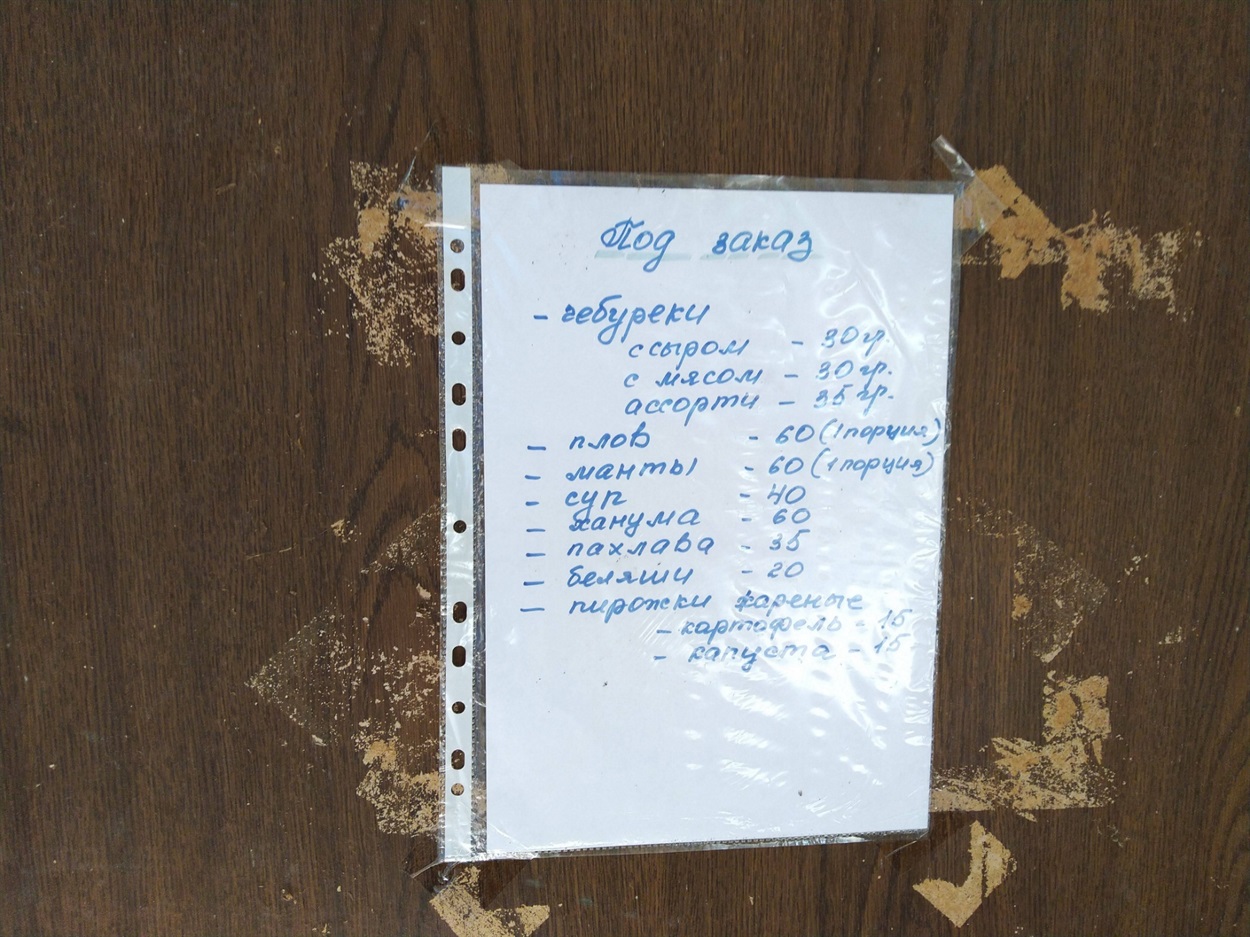 Под заказ
- чебуреки
с сыром - 30 гр.
с мясом - 30 гр.
ассорти - 35 гр.
- плов - 60 (1 порция)
- манты - 60 (1 порция)
- суп - 40
- ханума - 60
- пахлава - 35
- беляши - 20
- пирожки жареные
- картофель - 15
- капуста - 15